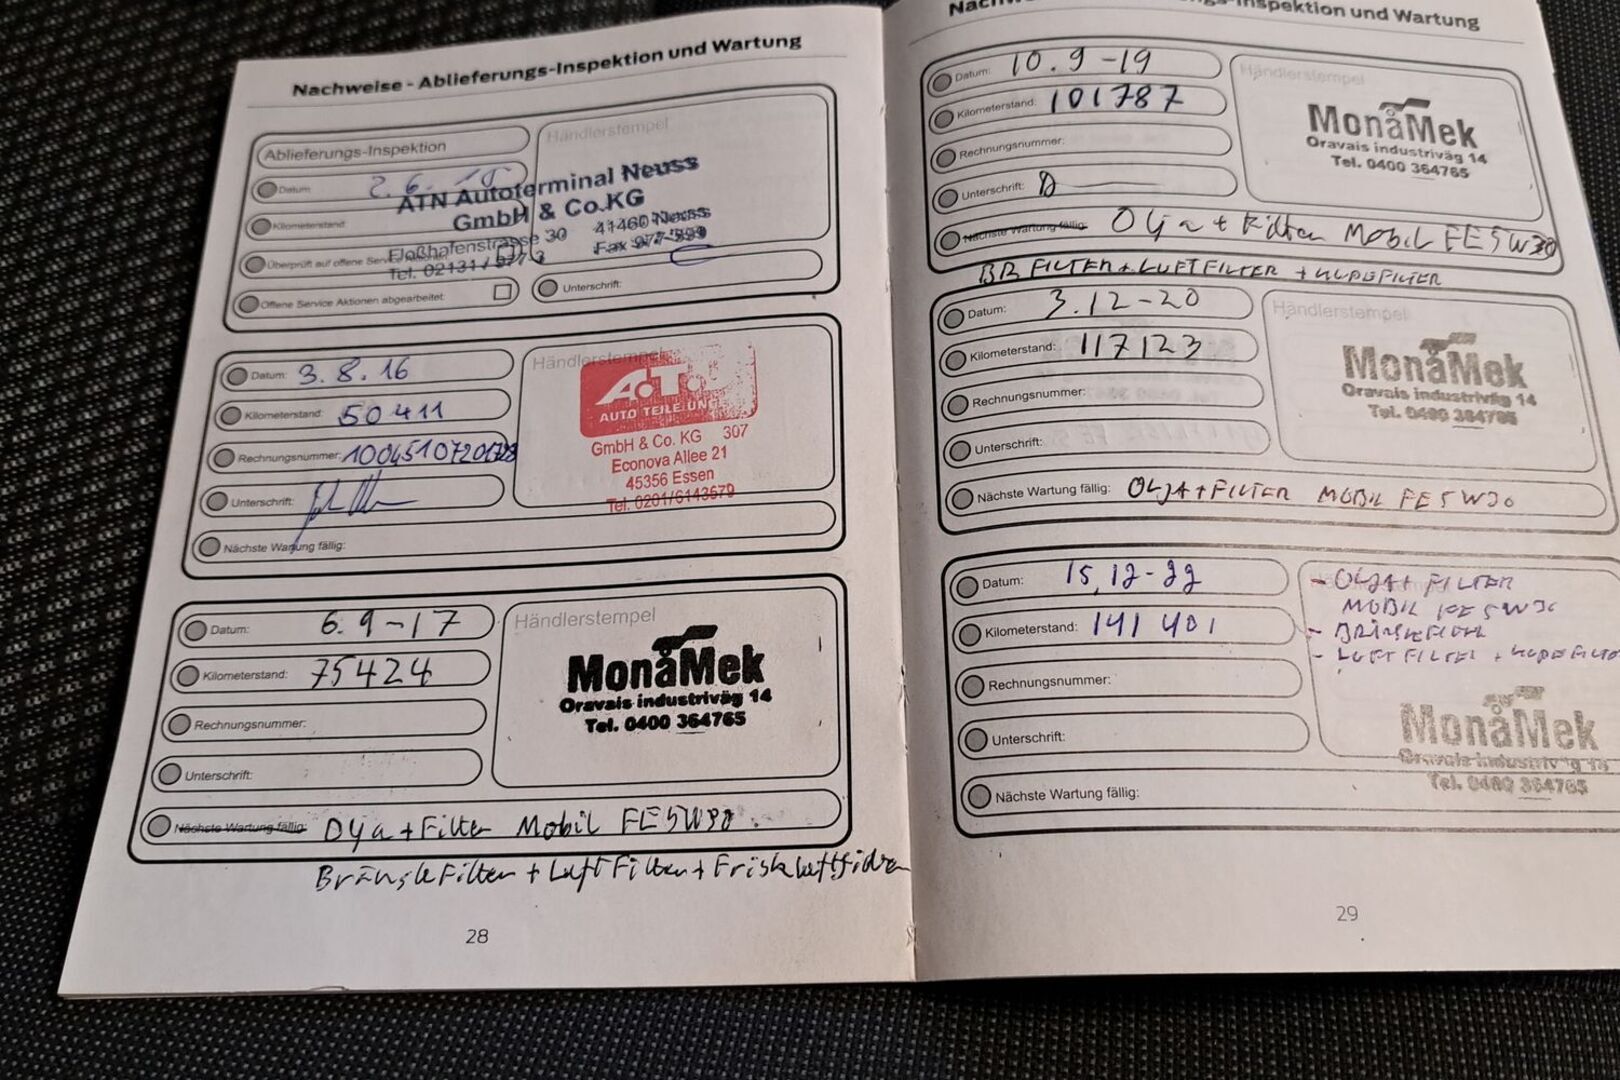 Nachweise - Ablieferungs-Inspektion und Wartung
Ablieferungs-Inspektion
Händlerstempel
Datum 2.6.
Kilometerstand
Überprüft auf offene Service
Offene Service Aktionen abgearbeitet:
Unterschrift:
ATN Autoterminal Neuss
GmbH & Co.KG
Floßhafenstrasse 30 41460 Neuss
Tel. 02131 / 977 Fax 977-399
Datum: 3.8.16
Kilometerstand: 50411
Rechnungsnummer:
Unterschrift:
Nächste Wartung fällig:
Händlerstempel
A.T.
AUTO TEILE UN
GmbH & Co. KG 307
Econova Allee 21
45356 Essen
Tel. 0201/6143679
Datum: 6.9-17
Kilometerstand: 75424
Rechnungsnummer:
Unterschrift:
Nächste Wartung fällig: Olja + Filter Mobil FE5W30.
BränsleFilter + LuftFilter +
Händlerstempel
MonåMek
Oravais industriväg 14
Tel. 0400 364765
28
Inspektion und Wartung
Datum: 10.9-19
Kilometerstand: 101787
Rechnungsnummer:
Unterschrift:
Nächste Wartung fällig: Olja + Filter Mobil FE5W30
BR FILTER + LUFTFILTER + KUPEFILTER
Händlerstempel
MonåMek
Oravais industriväg 14
Tel. 0400 364765
Datum: 3.12-20
Kilometerstand: 117123
Rechnungsnummer:
Unterschrift:
Nächste Wartung fällig: OLJA + FILTER MOBIL FE5W30
Händlerstempel
MonåMek
Oravais industriväg 14
Tel. 0400 364765
Datum: 15,12-22
Kilometerstand: 141 401
Rechnungsnummer:
Unterschrift:
Nächste Wartung fällig:
- OLJA + FILTER
MOBIL FE5W30
- LUFTFILTER +
MonåMek
Oravais industriväg 14
Tel. 0400 364765
29